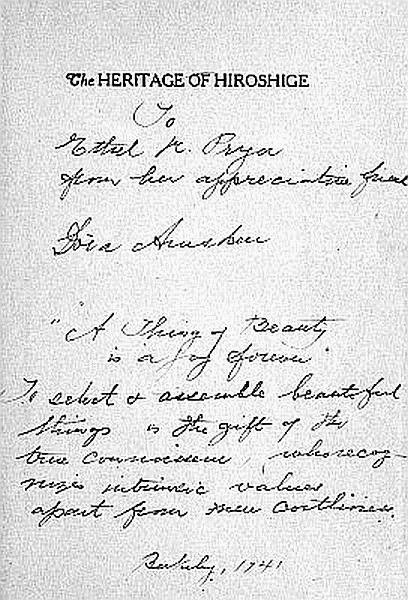 The HERITAGE OF HIROSHIGE
To
Ethel K. Pryor
from her appreciative friend
Dora Amsden
"A Thing of Beauty
is a joy forever"
To select & assemble beautiful
things is the gift of the
true connoisseur, who recog-
nizes intrinsic values
apart from mere costliness.
Berkeley, 1941